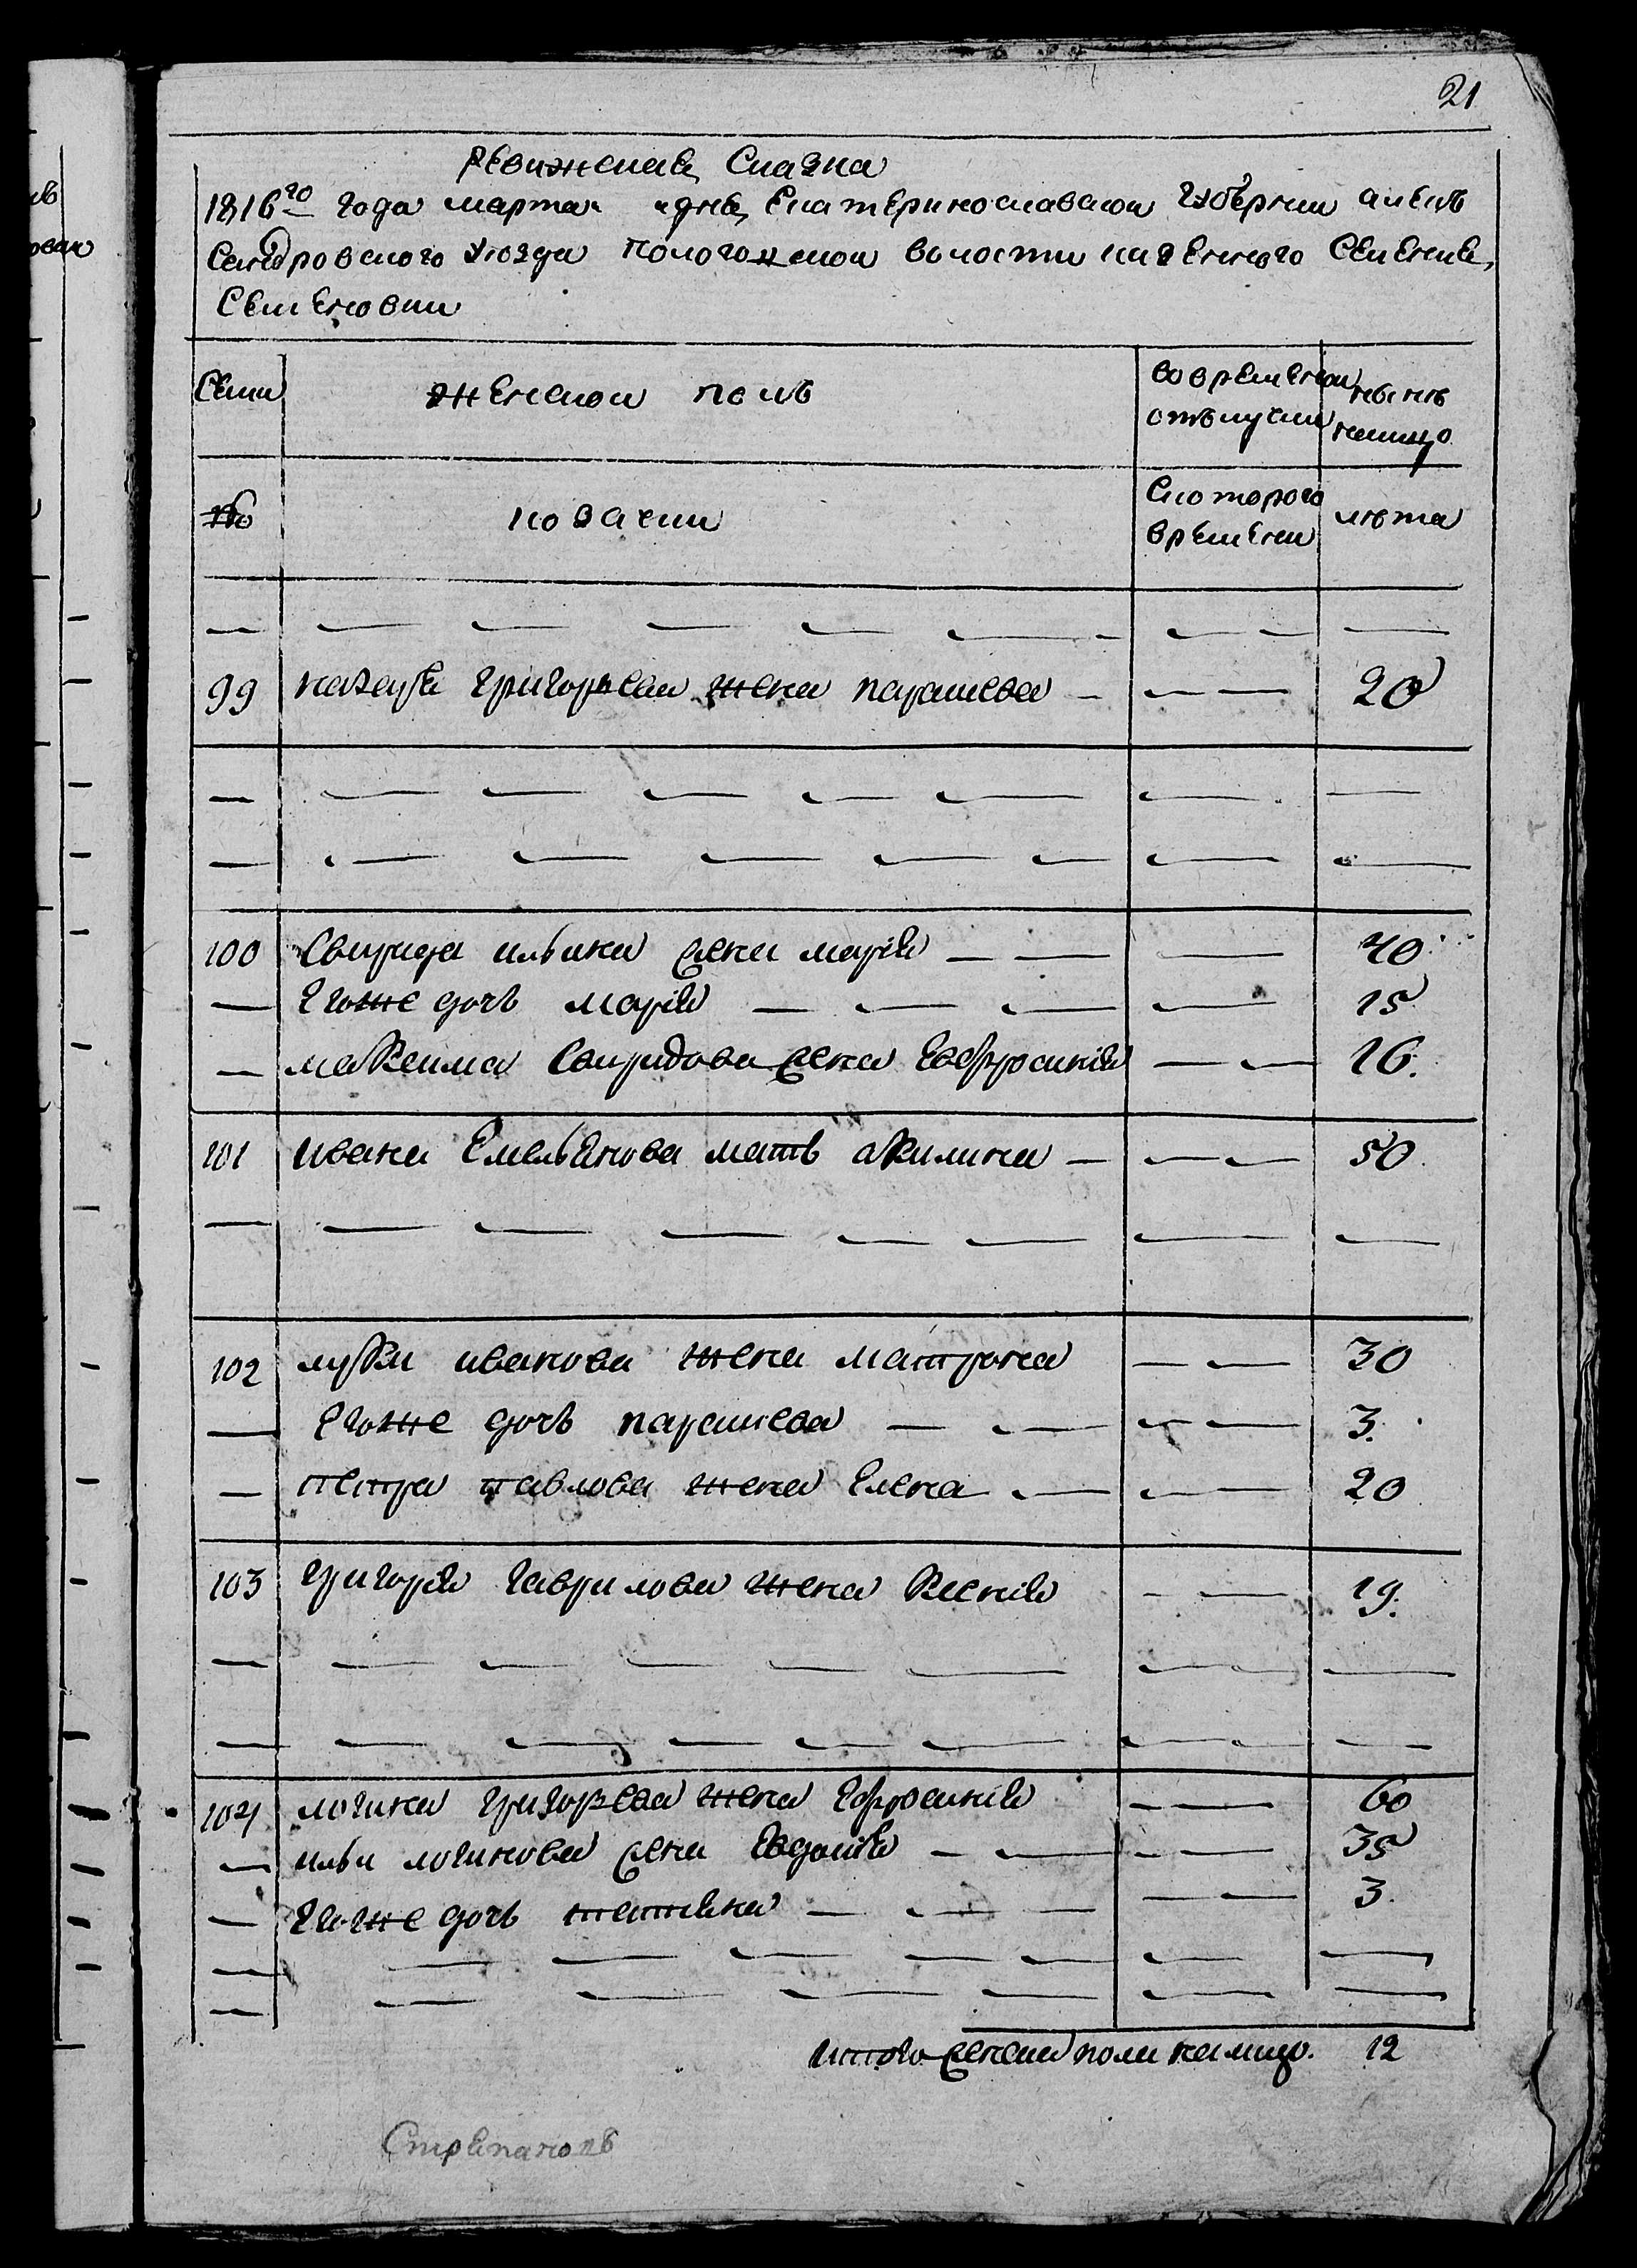 21
Ревижская Сказка
1816го года марта дня Екатеринославской Губернии алек
сандровского уезда Пологовской волости казенного Селения
Семеновки
Семи женской полъ вовременной отълучки нынъ налицо
№ козачки Скоторого времени лъта
— — — — — — — — —
99 назара григорьева жена параскева — — — 20
— — — — — — — — —
— — — — — — — — —
100 Свирида ильина жена марія — — — 40
— Егоже дочь марія — — — — 15
— максима Свиридова жена Евфросинія — — 16.
101 ивана Емельянова мать акилина — — — 50.
— — — — — — — — —
102 луки иванова жена матрона — — 30
— Егоже дочь параскева — — — — 3.
— петра павлова жена Елена — — 20
103 григорія гаврилова жена Ксенія — — 19.
— — — — — — — — —
— — — — — — — — —
104 логина григорьева жена Ефросинія — — 60
— ильи логинова жена Евдокія — — — — 35
— Егоже дочь татіяна — — — — — 3.
— — — — — — — —
— — — — — — — —
итого женска пола налицо. 12